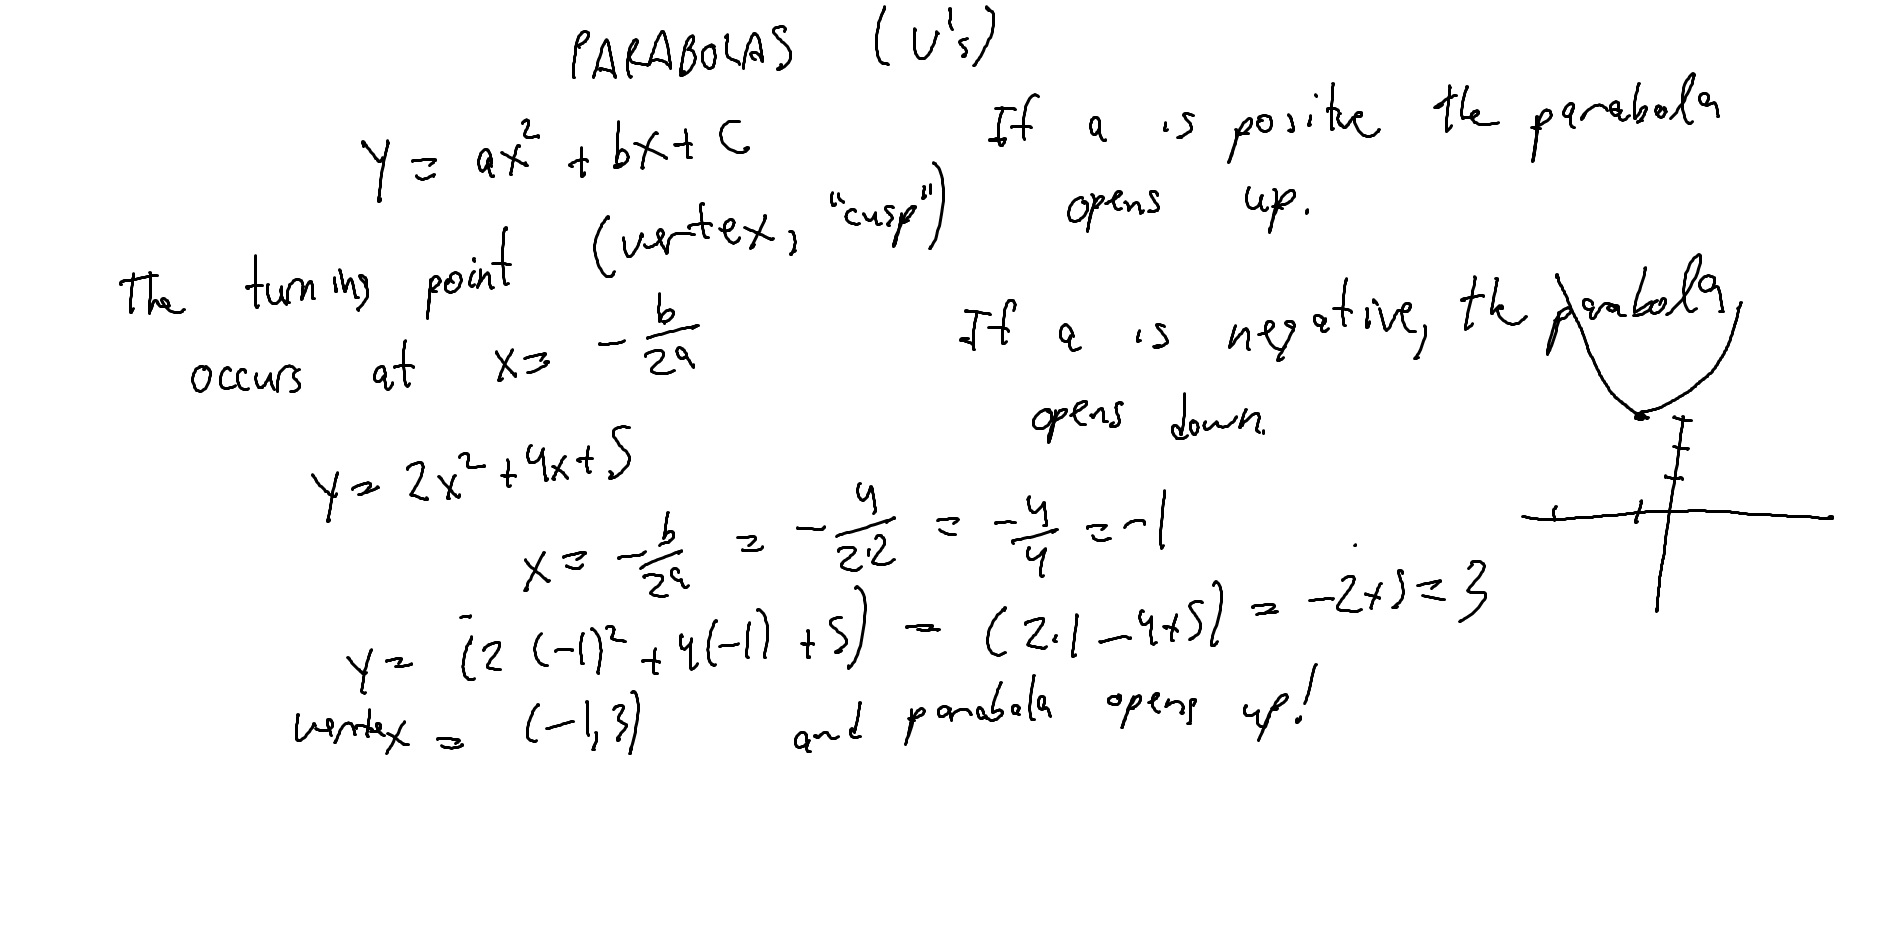 PARABOLAS (U's)
y = ax² + bx + c
The turning point (vertex, "cusp")
occurs at x = -b/2a
If a is positive the parabola
opens up.
If a is negative, the parabola
opens down.
y = 2x² + 4x + 5
x = -b/2a = -4/2·2 = -4/4 = -1
y = (2(-1)² + 4(-1) + 5) = (2·1 - 4 + 5) = -2 + 5 = 3
vertex = (-1, 3) and parabala opens up!